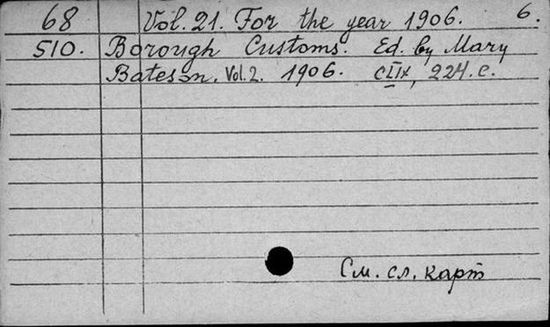 68 Vol. 21. For the year 1906. 6.
510. Borough Customs. Ed. by Mary
Bateson. Vol. 2. 1906. CLIX, 224. c.
См. сл. карт